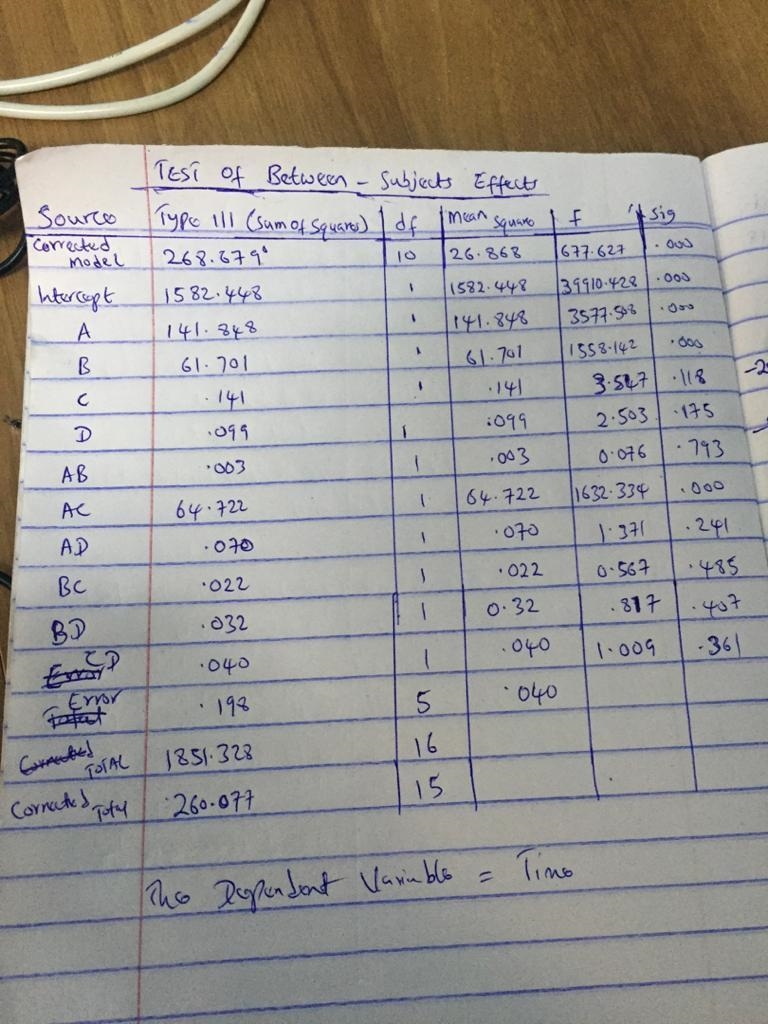 TEST OF Between - Subjects Effects
Source Type III (Sum of Squares) df Mean Square F Sig
Corrected model 268.679ᵃ 10 26.868 677.627 .000
Intercept 1582.448 1 1582.448 39910.428 .000
A 141.848 1 141.848 3577.508 .000
B 61.701 1 61.701 1558.142 .000
C .141 1 .141 3.547 .118
D .099 1 .099 2.503 .175
AB .003 1 .003 0.076 .793
AC 64.722 1 64.722 1632.334 .000
AD .070 1 .070 1.371 .241
BC .022 1 .022 0.567 .485
BD .032 1 0.32 .817 .407
CD .040 1 .040 1.009 .361
Error .198 5 .040
TOTAL 1851.328 16
Corrected Total 260.077 15
The Dependent Variable = Time